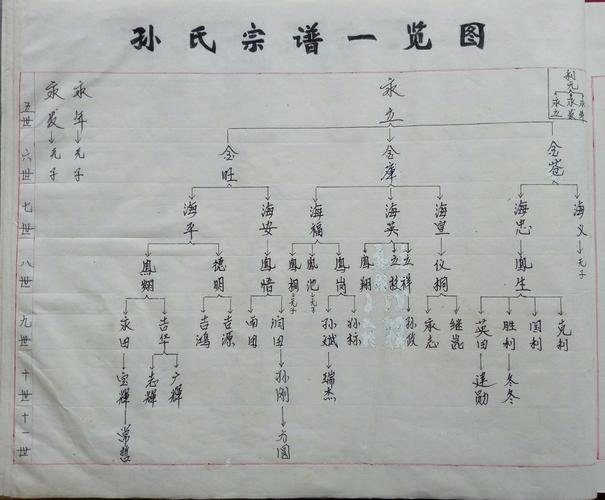 孙氏宗谱一览图
利元
永立 永发 永年
五世
永发→无子
永年→无子
永立
六世
金旺
金库
金苍
七世
海平
海安
海福
海英
海皇
海忠
海义→无子
八世
凤翔
德明
凤悟
凤桐→无子
凤池→无子
凤岗
凤翔
立祥
仪桐
凤生
九世
永田
吉华
吉鸿
吉源
雨田
润田
孙斌
孙标
孙俊
承志
继昆
英田
胜利
国利
克利
十世
宝辉
志辉
广辉
孙刚
瑞杰
建勋
冬冬
十一世
常哲
方圆